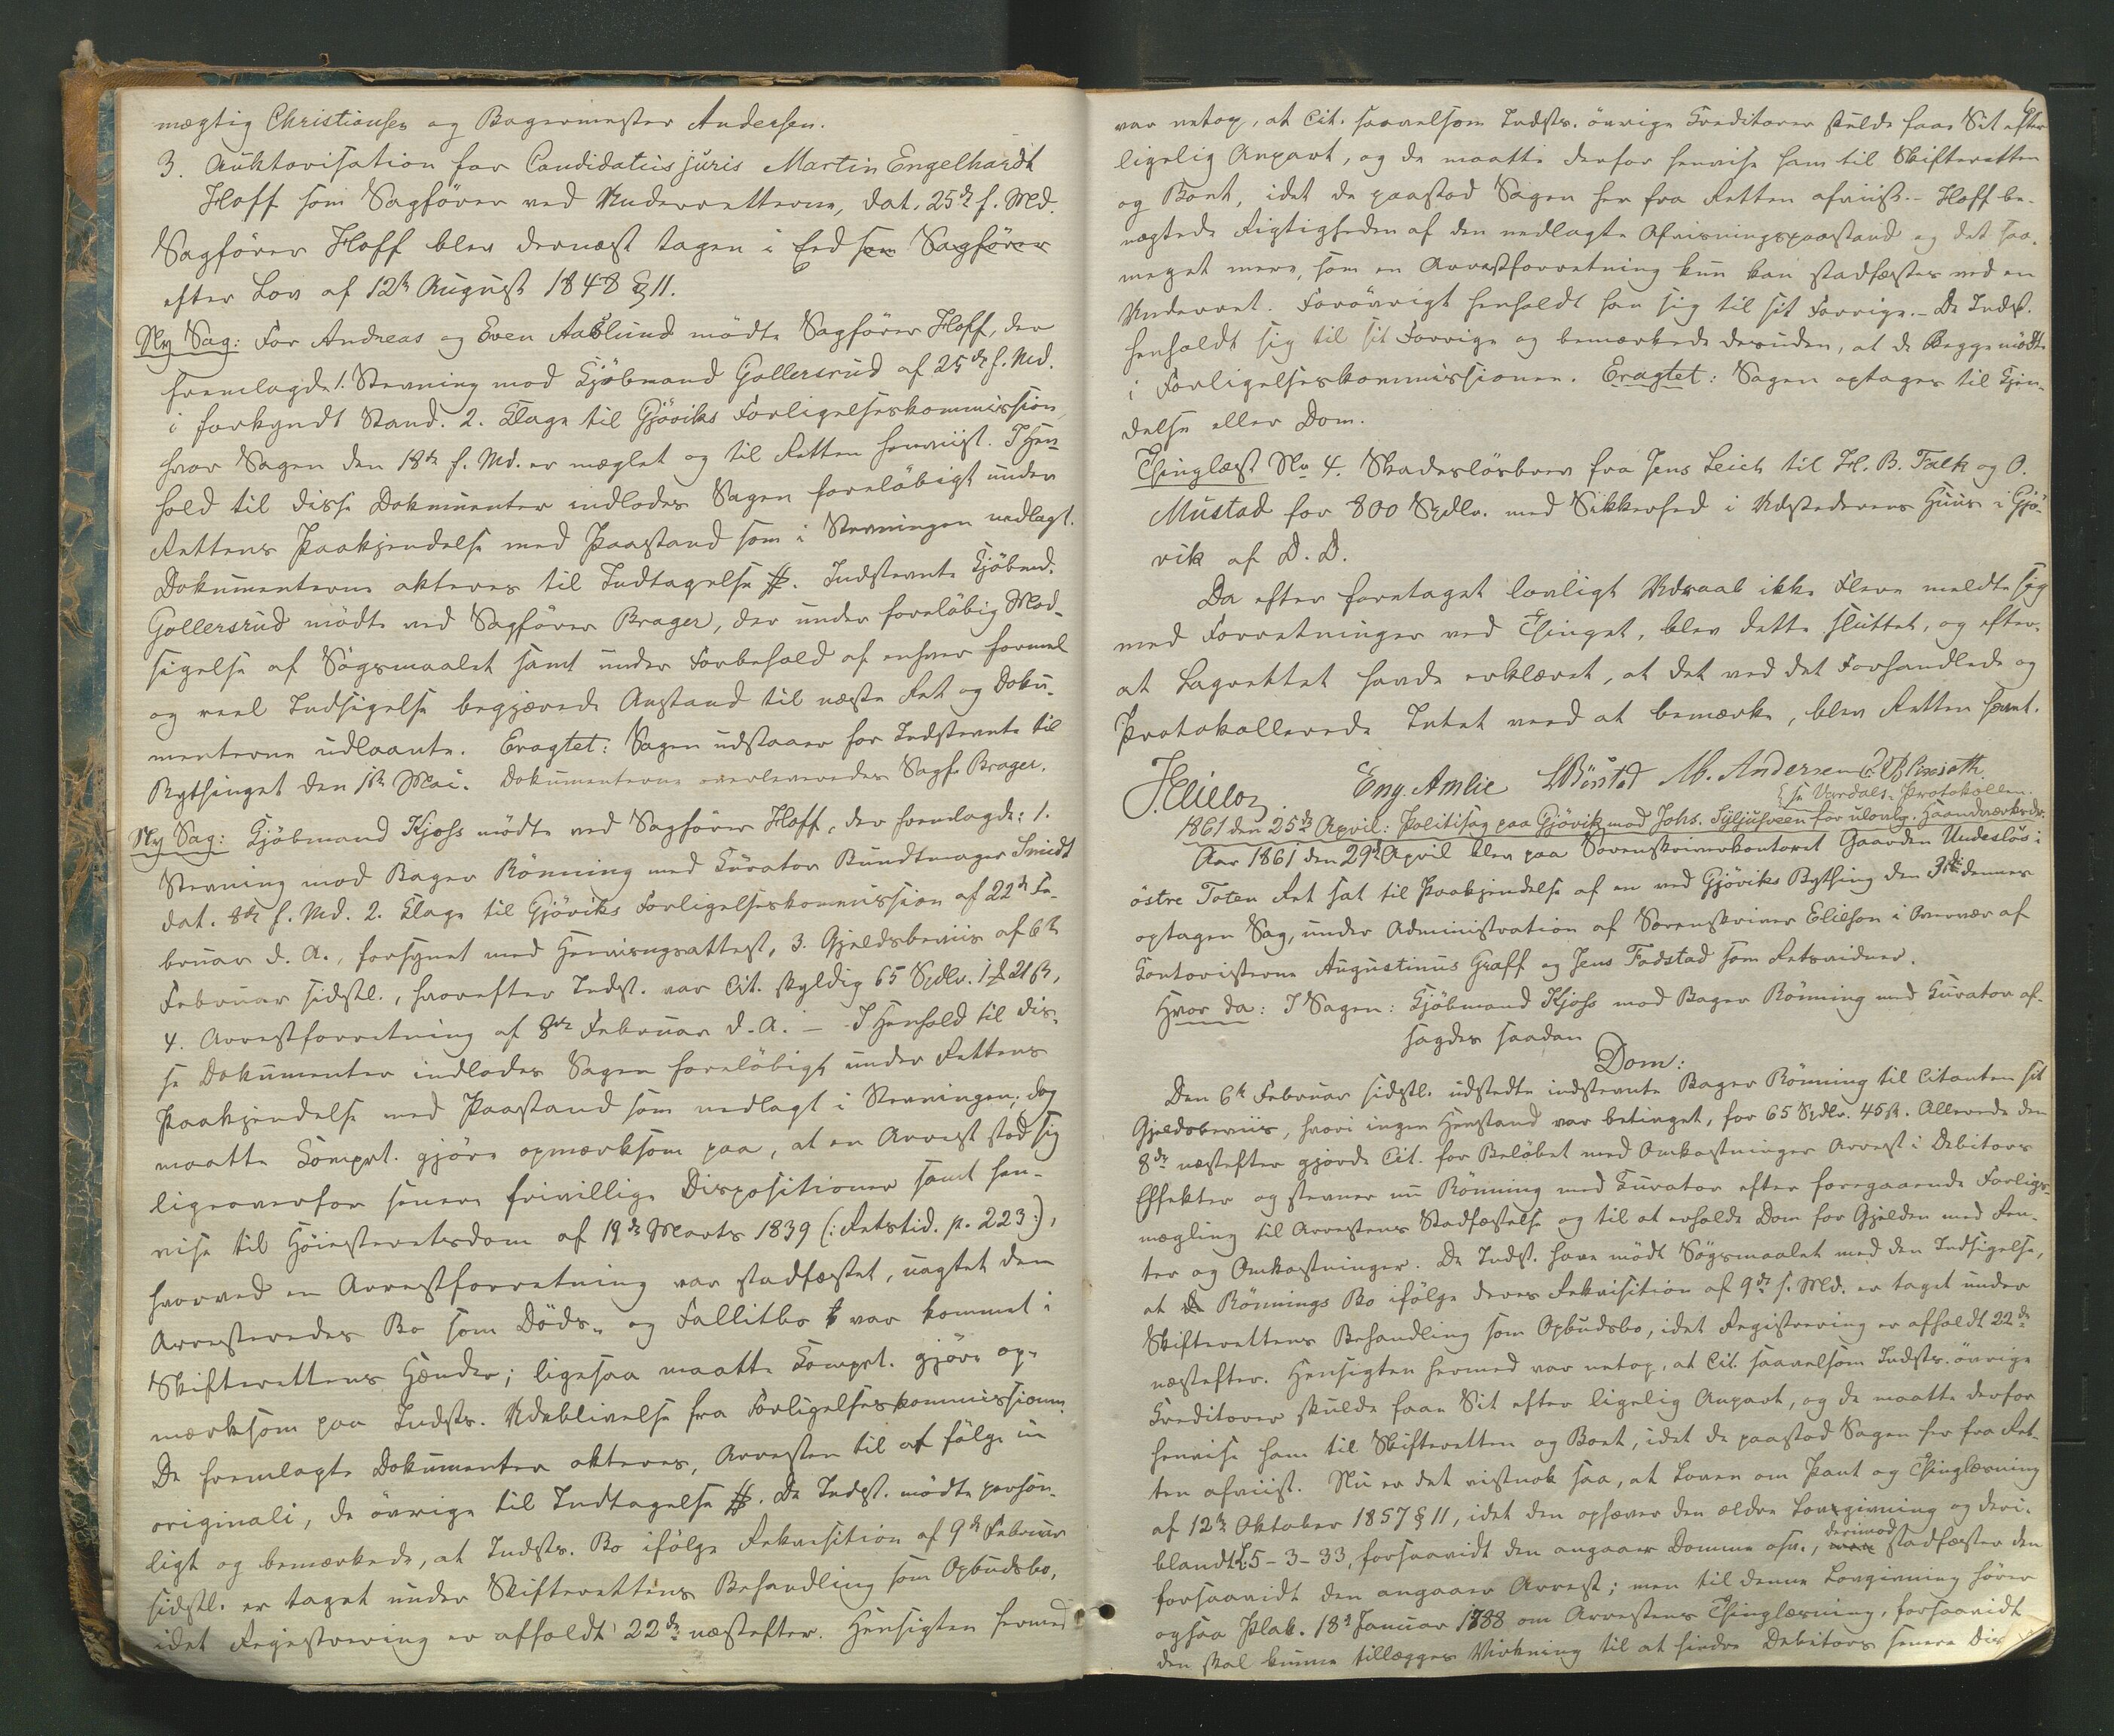 mægtig Christiansen og Bagermester Andersen.
3. Auktorisation for Candidatus juris Martin Engelhardt
Hoff som Sagfører ved Underretterne, dat. 25de f. Md.
Sagfører Hoff blev dernæst tagen i Eed som Sagfører
efter Lov af 12te August 1848 § 11.
Ny Sag: For Andreas og Even Aaslund mødte Sagfører Hoff, der
fremlagde 1. Stevning mod Kjøbmand Gollersrud af 25de f. Md.
i forkyndt Stand. 2. Klage til Gjøviks Forligelseskommission,
hvor Sagen den 18de f. Md. er mæglet og til Retten henviist. I Hen-
hold til disse Dokumenter indlodes Sagen foreløbigt under
Rettens Paakjendelse med Paastand som i Stevningen nedlagt.
Dokumenterne akteres til Indtagelse #. Indstevnte Kjøbmd.
Gollersrud mødte ved Sagfører Brager, der under foreløbig Mod-
sigelse af Søgsmaalet samt under Forbehold af enhver formel
og reel Indsigelse begjærede Anstand til næste Ret og Doku-
menterne udlaante. Eragtet: Sagen udstaaer for Indstevnte til
Bythinget den 1ste Mai. Dokumenterne overleveredes Sagf. Brager.
Ny Sag: Kjøbmand Kjøss mødte ved Sagfører Hoff, der fremlagde: 1.
Stevning mod Bager Rønning med Kurator Bundtmager Smidt
dat. 8de f. Md. 2. Klage til Gjøviks Forligelseskommission af 22de Fe-
bruar d. A., forsynet med Henvisningsattest, 3. Gjeldsbeviis af 6te
Februar sidstl., hvorefter Indst. var Cit. skyldig 65 Spdlr. 1 # 21 ß,
4. Arrestforretning af 8de Februar d. A. — I Henhold til dis-
se Dokumenter indlodes Sagen foreløbigt under Rettens
Paakjendelse med Paastand som nedlagt i Stevningen; dog
maatte Komprt. gjøre opmærksom paa, at en Arrest stod sig
ligeoverfor senere frivillige Dispositioner samt hen-
vise til Høiesteretsdom af 19de Marts 1839 (: Retstid. p. 223 :),
hvorved en Arrestforretning var stadfæstet, uagtet den
Arresteredes Bo som Døds- og Fallitbo var kommet i
Skifterettens Hænder; ligesaa maatte Komprt. gjøre op-
mærksom paa Indsts. Udeblivelse fra Forligelseskommissionen.
De fremlagte Dokumenter akteres, Arresten til at følge in
originali, de øvrige til Indtagelse #. De Indst. mødte person-
ligt og bemærkede, at Indsts. Bo ifølge Rekvisition af 9de Februar
sidstl. er taget under Skifterettens Behandling som Opbudsbo,
idet Registrering er afholdt 22de næstefter. Hensigten hermed
6
var netop, at Cit. saavelsom Indsts. øvrige Kreditorer skulde faae Sit efter
ligelig Anpart, og de maatte derfor henvise ham til Skifteretten
og Boet, idet de paastod Sagen her fra Retten afviist. – Hoff be-
nægtede Rigtigheden af den nedlagte Afvisningspaastand og det saa-
meget mere, som en Arrestforretning kun kan stadfæstes ved en
Underret. Forøvrigt henholdt han sig til sit Forrige. – De Indst.
henholdt sig til sit Forrige og bemærkede desuden, at de Begge mødte
i Forligelseskommissionen. Eragtet: Sagen optages til Kjen-
delse eller Dom.
Thinglæst No 4. Skadesløsbrev fra Jens Leich til H. B. Falk og O.
Mustad for 800 Spdlr. med Sikkerhed i Udstederens Huus i Gjø-
vik af D. D.
Da efter foretaget lovligt Udraab ikke Flere meldte sig
med Forretninger ved Thinget, blev dette sluttet, og efter-
at Lagrettet havde erklæret, at det ved det Forhandlede og
Protokollerede Intet veed at bemærke, blev Retten hævet.
Elieson Eng. Amlie M. Andersen
se Vardals-Protokollen.
1861 den 25de April: Politisag paa Gjøvik mod Johs. Syljusveen for ulovlig Haandværksdr.
Aar 1861 den 29de April blev paa Sorenskriverkontoret Gaarden Undesløs i
østre Toten Ret sat til Paakjendelse af en ved Gjøviks Bything den 3die dennes
optagen Sag, under Administration af Sorenskriver Elieson i Overvær af
Kontoristerne Augustinus Graff og Jens Fodstad som Retsvidner.
Hvor da: I Sagen: Kjøbmand Kjøss mod Bager Rønning med Kurator af-
sagdes saadan
Dom:
Den 6te Februar sidstl. udstedte indstevnte Bager Rønning til Citanten sit
Gjeldsbeviis, hvori ingen Henstand var betinget, for 65 Spdlr. 45 ß. Allerede den
8de næstefter gjorde Cit. for Beløbet med Omkostninger Arrest i Debitors
Effekter og stevner nu Rønning med Kurator efter foregaaende Forligs-
mægling til Arrestens Stadfæstelse og til at erholde Dom for Gjelden med Ren-
ter og Omkostninger. De Indst. have mødt Søgsmaalet med den Indsigelse,
at Rønnings Bo ifølge deres Rekvisition af 9de s. Md. er taget under
Skifterettens Behandling som Opbudsbo, idet Registrering er afholdt 22de
næstefter. Hensigten hermed var netop, at Cit. saavelsom Indsts. øvrige
Kreditorer skulde faae Sit efter ligelig Anpart, og de maatte derfor
henvise ham til Skifteretten og Boet, idet de paastod Sagen her fra Ret-
ten afviist. Nu er det vistnok saa, at Loven om Pant og Thinglæsning
af 12te Oktober 1857 § 11, idet den ophæver den ældre Lovgivning og deri-
blandt L. 5-3-33, forsaavidt den angaaer Domme osv., derimod stadfæster den
forsaavidt den angaaer Arrest; men til denne Lovgivning hører
ogsaa Plak. 18de Januar 1788 om Arrestens Thinglæsning, forsaavidt
den skal kunne tillægges Virkning til at hindre Debitors senere Dis